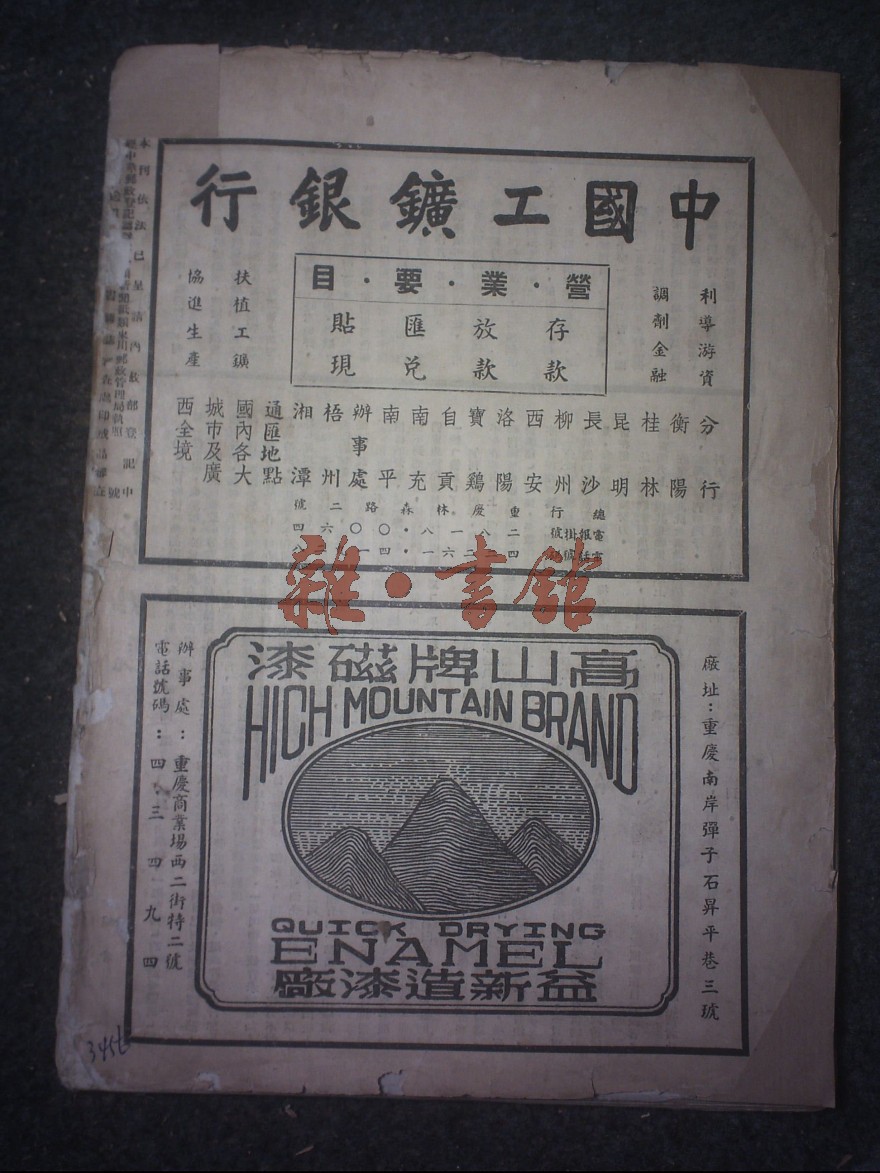 中國工鑛銀行
利導游資
調劑金融
營·業·要·目
存款
放款
匯兌
貼現
扶植工鑛
協進生產
分行
衡陽
桂林
昆明
長沙
柳州
西安
洛陽
寶鷄
自貢
南充
南平
辦事處
梧州
湘潭
通匯地點
國內各大
城市及廣
西全境
總行 重慶林森路二號
雜·書館
高山牌磁漆
HIGH MOUNTAIN BRAND
QUICK DRYING
ENAMEL
益新造漆廠
廠址：重慶南岸彈子石昇平巷三號
辦事處：重慶商業場西二街特二號
電話號碼：四·三四九四